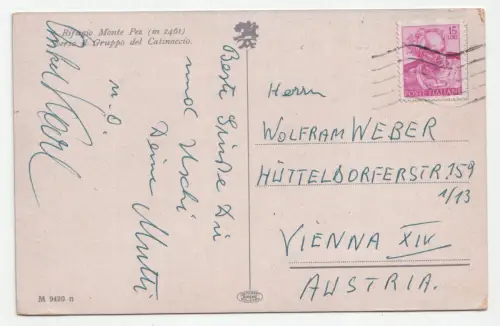 Rifugio Monte Pez (m 2461)
verso il Gruppo del Catinaccio.
Beste Grüße Dir
und Uschi
Deine Mutti
u. O.
Karl
15
LIRE
POSTE ITALIANE
Herrn
WOLFRAM WEBER
HÜTTELDORFERSTR. 159
1/13
VIENNA XIV
AUSTRIA.
M 9420 n